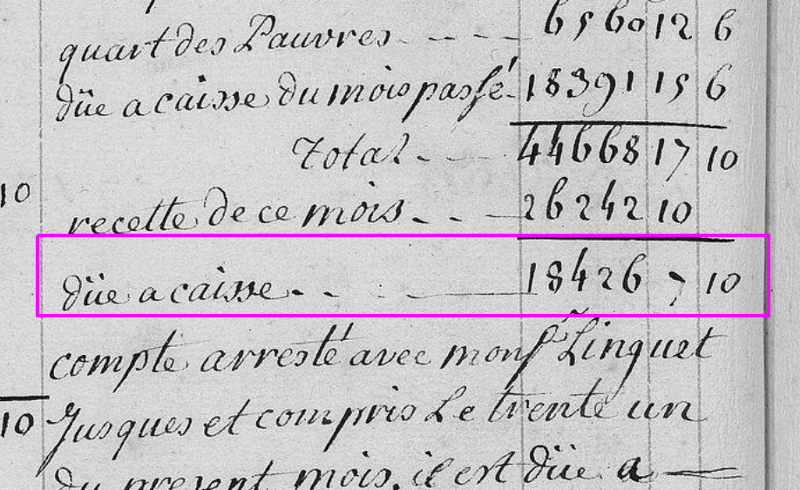 quart des Pauvres - - - - 6560 12 6
düe a caisse du mois passé - 18391 15 6
Total - - - 44668 17 10
10
recette de ce mois - - - 26242 10
düe a caisse - - - 18426 7 10
compte arresté avec monsr Linguet
10 Jusques et compris Le trente un
du present mois, il est düe a —